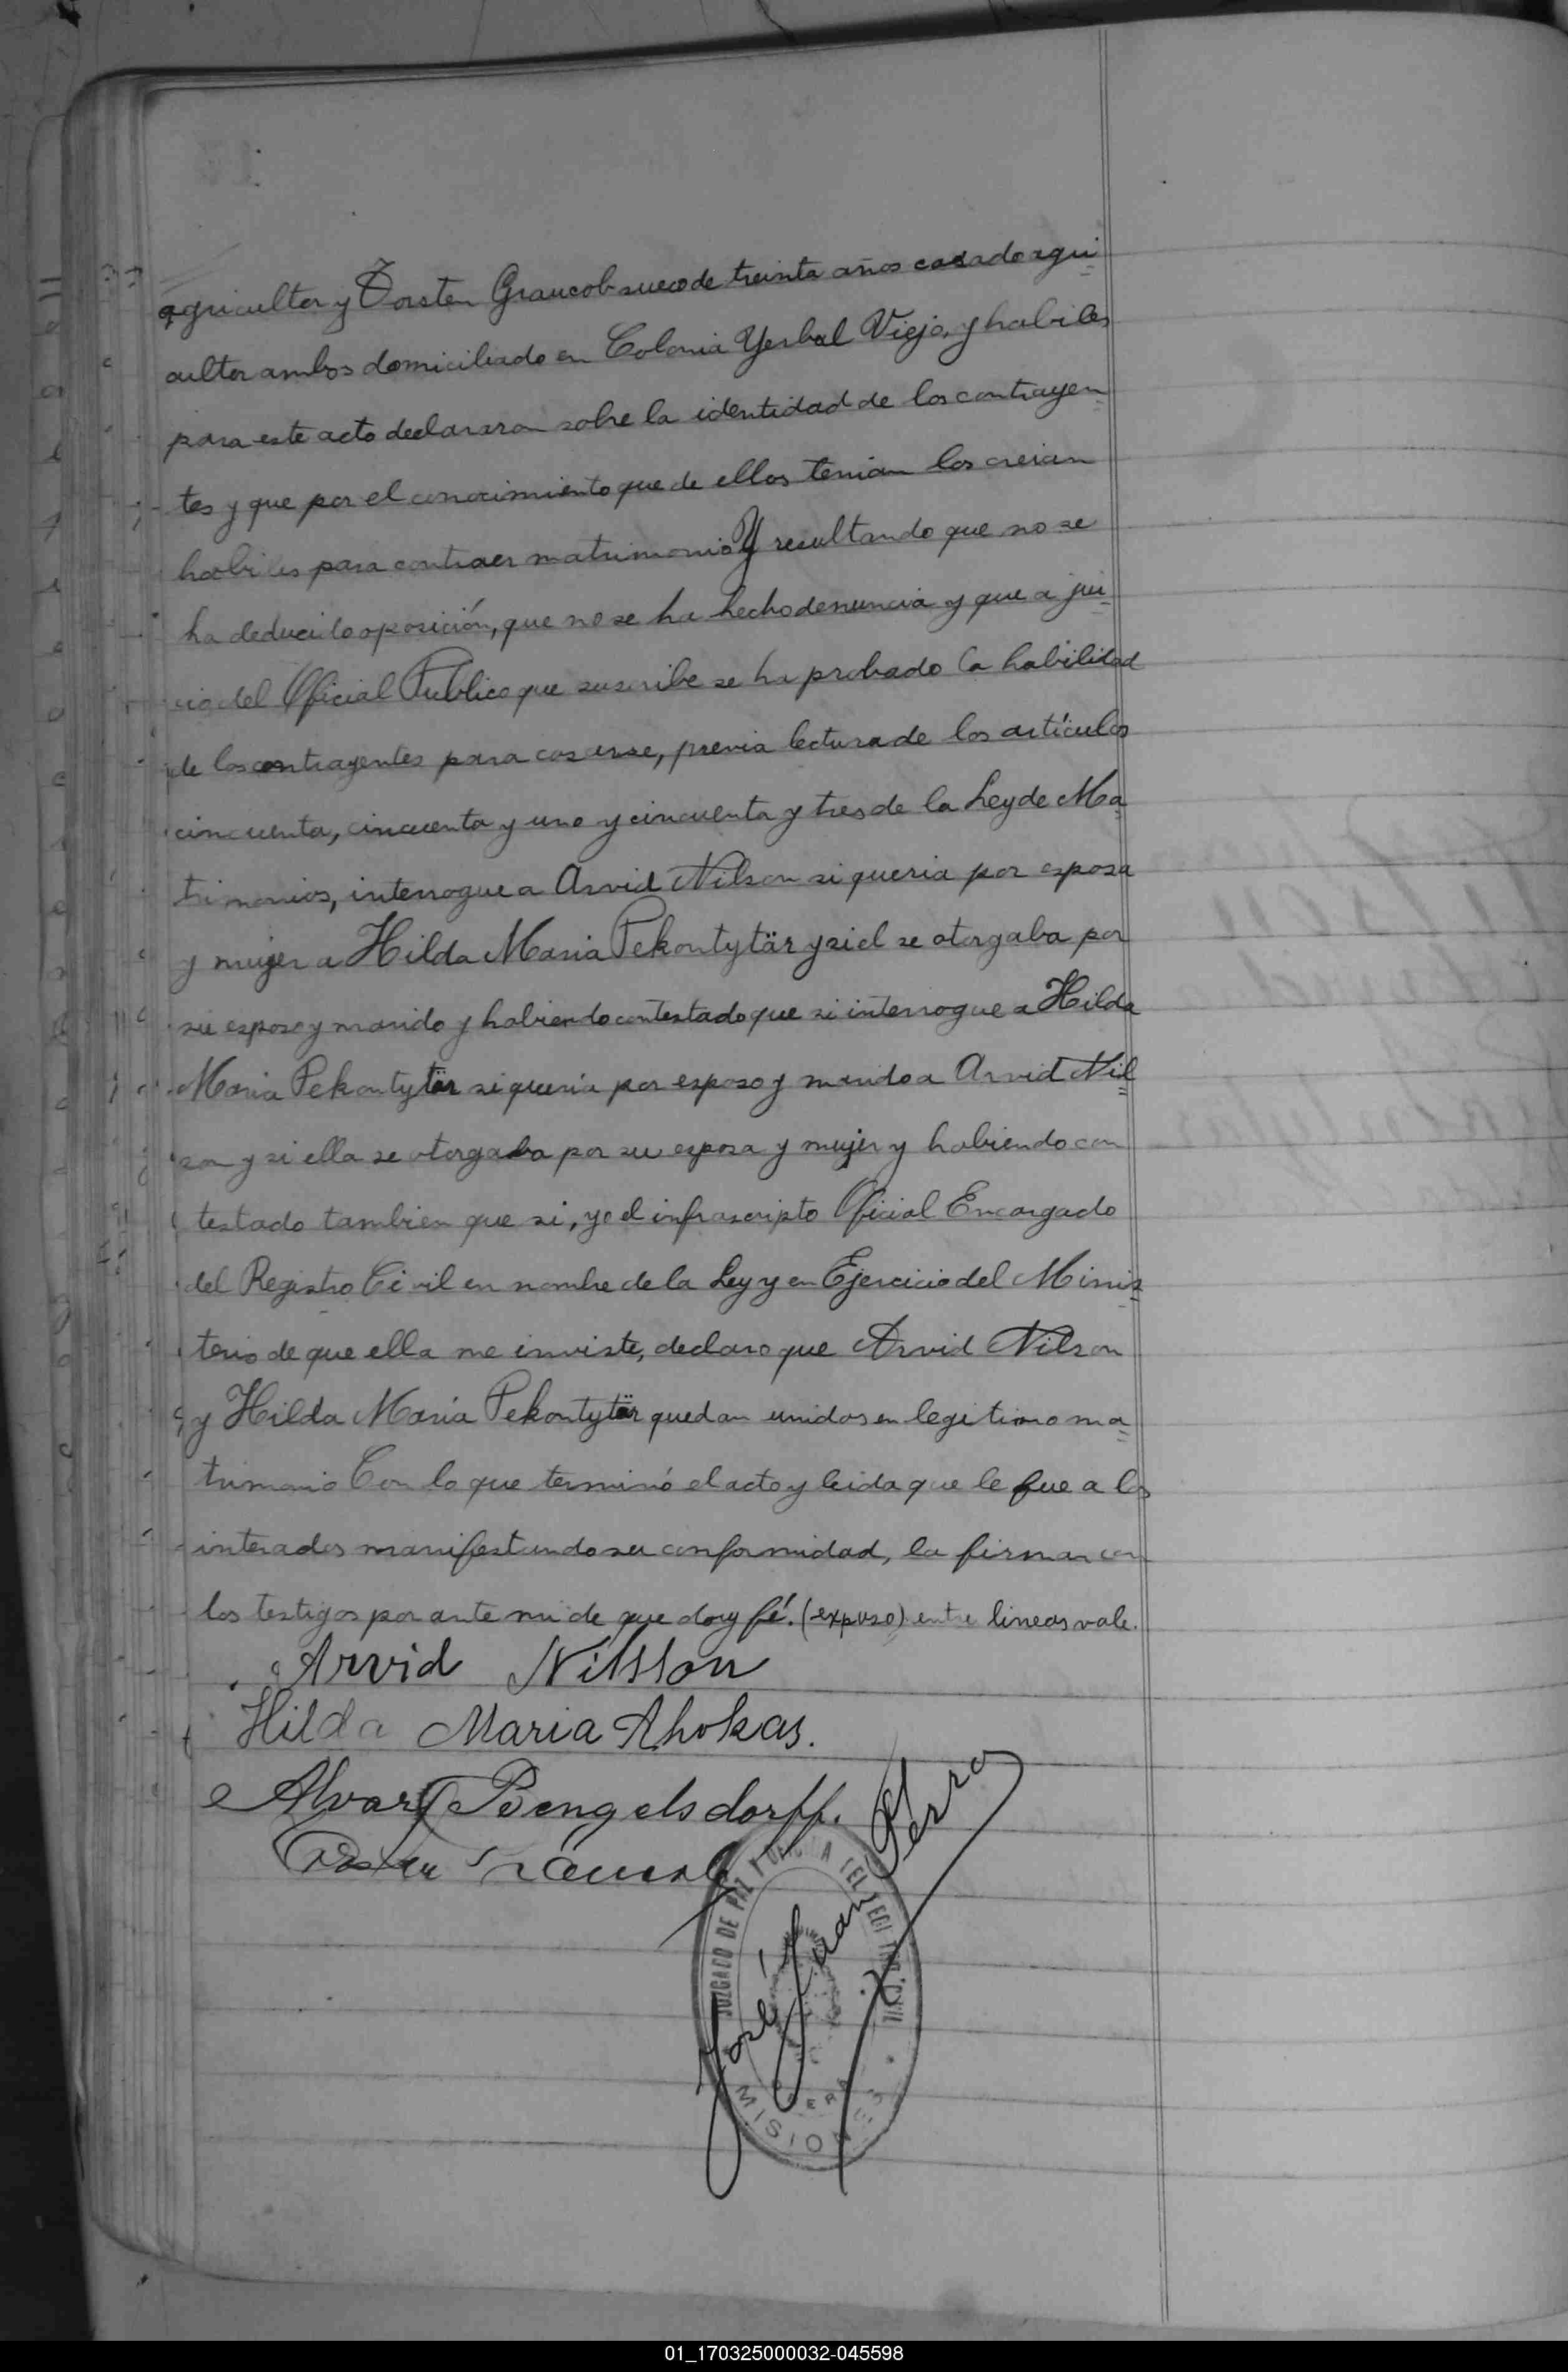 agricultor y Torsten Graucob sueco de treinta años casado agri
cultor ambos domiciliado en Colonia Yerbal Viejo, y habiles
para este acto declararon sobre la identidad de los contrayen
tes y que por el conocimiento que de ellos tenian los creian
habiles para contraer matrimonio Y resultando que no se
ha deducido oposición, que no se ha hecho denuncia y que a jui
cio del Oficial Publico que suscribe se ha probado la habilidad
de los contrayentes para casarse, previa lectura de los artículos
cincuenta, cincuenta y uno y cincuenta y tres de la Ley de Ma
trimonios, interrogue a Arvid Nilson si queria por esposa
y mujer a Hilda Maria Pekontytär y si el se otorgaba por
su esposo y marido y habiendo contestado que si interrogue a Hilda
Maria Pekontytär si queria por esposo y marido a Arvid Nil
son y si ella se otorgaba por su esposa y mujer y habiendo con
testado tambien que si, yo el infrascripto Oficial Encargado
del Registro Civil en nombre de la Ley y en Ejercicio del Minis
terio de que ella me inviste, declaro que Arvid Nilson
y Hilda Maria Pekontytär quedan unidos en legitimo ma
trimonio Con lo que terminó el acto y leida que le fue a los
interados manifestando su conformidad, la firman con
los testigos por ante mi de que doy fé. (expuso) entre lineas vale.
Arvid Nilsson
Hilda Maria Ahokas.
Alvar Bengelsdorff.
José Juan Perro
JUZGADO DE PAZ
CIVIL
MISIONES
01_170325000032-045598